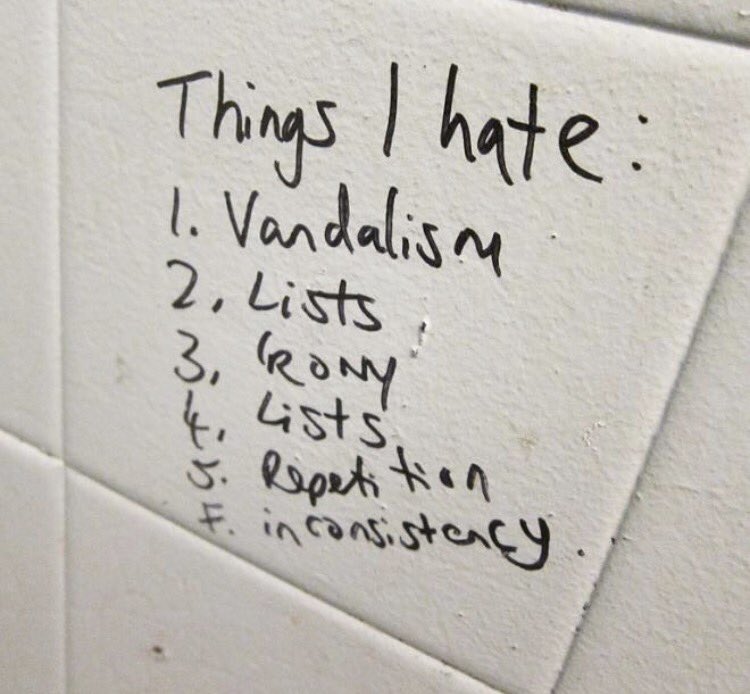 Things I hate:
1. Vandalism
2. Lists
3. IRONY
4. Lists
5. Repetition
F. inconsistency.